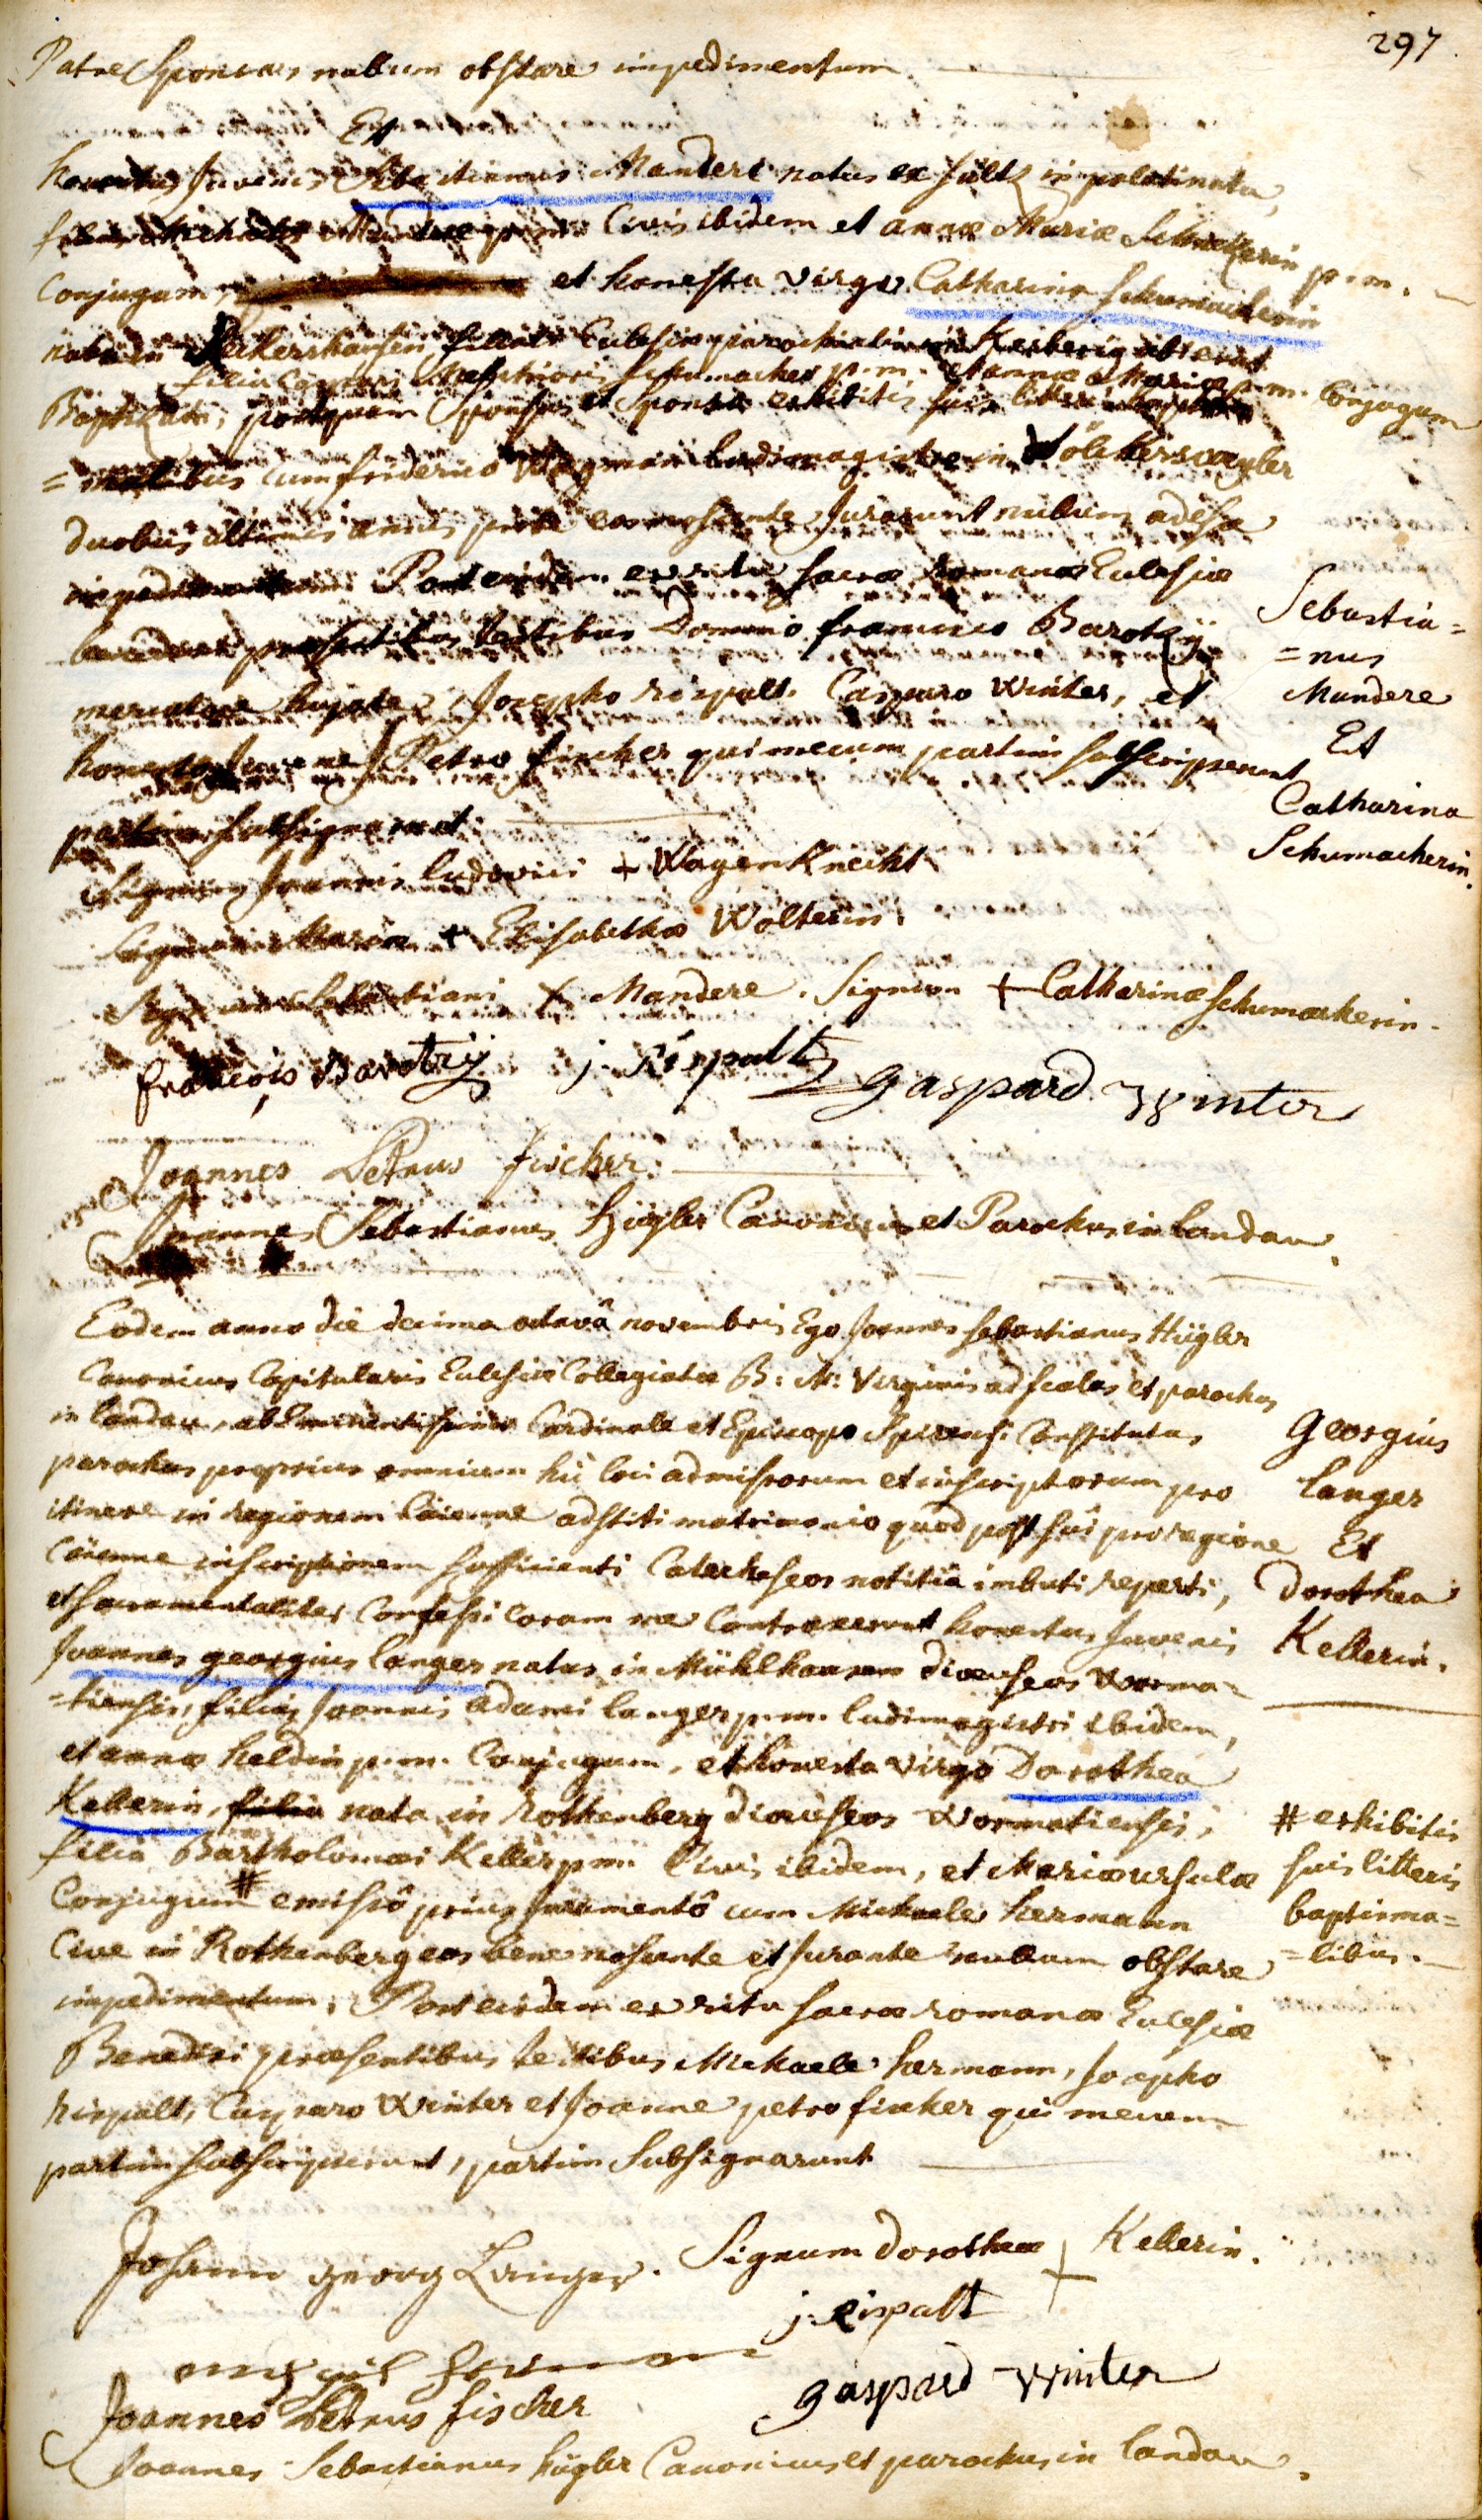 297
Patre Sponsae nullum obstare impedimentum
Et
honestus Juvenis Sebastianus Mandere natus ex Sültz in palatinatu,
filius Michaelis Mandere p.m. Civis ibidem et annae Mariae p.m.
Conjugum, et honesta virgo Catharina Schumacherin
nata in
filia Caspari Schumacher p.m. et annae Mariae p.m. Conjugum
Baptizati, postquam Sponsus et Sponsa exhibitis suis litteris baptis=
=malibus cum friderico Wagman ludimagistro in
duobus ultimis annis probe eos noscente Jurarunt nullum adesse
impedimentum. Post eisdem ex ritu Sacrae Romanae Eclesiae
benedixi praesentibus testibus Domino francisco Barotzÿ
mercatore hujate, Josepho rispalt. Casparo Winter, et
honesto Juvene J Petro fischer qui mecum partim subscripserunt
partim subsignarunt.
Sebastia=
=nus
Mandere
Et
Catharina
Schumacherin.
Signum Joannis ludovici + Wagenknecht
Signum Mariae + Elisabethae Wolterin.
Signum Sebastiani + Mandere. Signum + Catharinae Schumacherin.
françois Barotzij j. Rispalt gaspard Winter
Joannes Petrus fischer
Joannes Sebastianus Hügler Canonicus et Parochus in landau.
Eodem anno die decima octavâ novembris Ego Joannes Sebastianus Hügler
Canonicus Capitularis Eclesiae Collegiatae B: M: Virginis ad scalas et parochus
in landau, ab Eminentissimo Cardinale et Episcopo Spirensi Constitutus
parochus proprius omnium hic loci admissorum et inscriptorum pro
itinere in regionem Caienne adstiti matrimonio quod post sui pro regione
Caienne inscriptionem sufficienti Catecheseos notitiâ imbuti reperti,
et sacramentaliter Confessi coram me Contraxerunt honestus Juvenis
Joannes georgius langer natus in Mühlhausen dioeceseos worma=
=tiensis, filius Joannis adami langer p.m. ludimagistri ibidem,
et annae heldin p.m. Conjugum, et honesta virgo Dorothea
Kellerin, filia nata in Rothenberg dioeceseos wormatiensis,
filia Bartholomaei Keller p.m. Civis ibidem, et Mariae ursulae
Conjugum # emissô prius Juramentô cum Michaele hermann
Cive in Rothenberg eos bene noscente et Jurante nullum obstare
impedimentum. Post eisdem ex ritu sacrae romanae Eclesiae
Benedixi praesentibus testibus Michaele hermann, Josepho
rispalt, Casparo Winter et Joanne petro fischer qui mecum
partim subscripserunt, partim subsignarunt
Georgius
langer
Et
Dorothea
Kellerin.
# exhibitis
suis litteris
baptisma=
=libus.
Johann georg Langer. Signum Dorotheae + Kellerin.
j. rispalt
gaspard Winter
Joannes Petrus fischer
Joannes Sebastianus hügler Canonicus et parochus in landau.